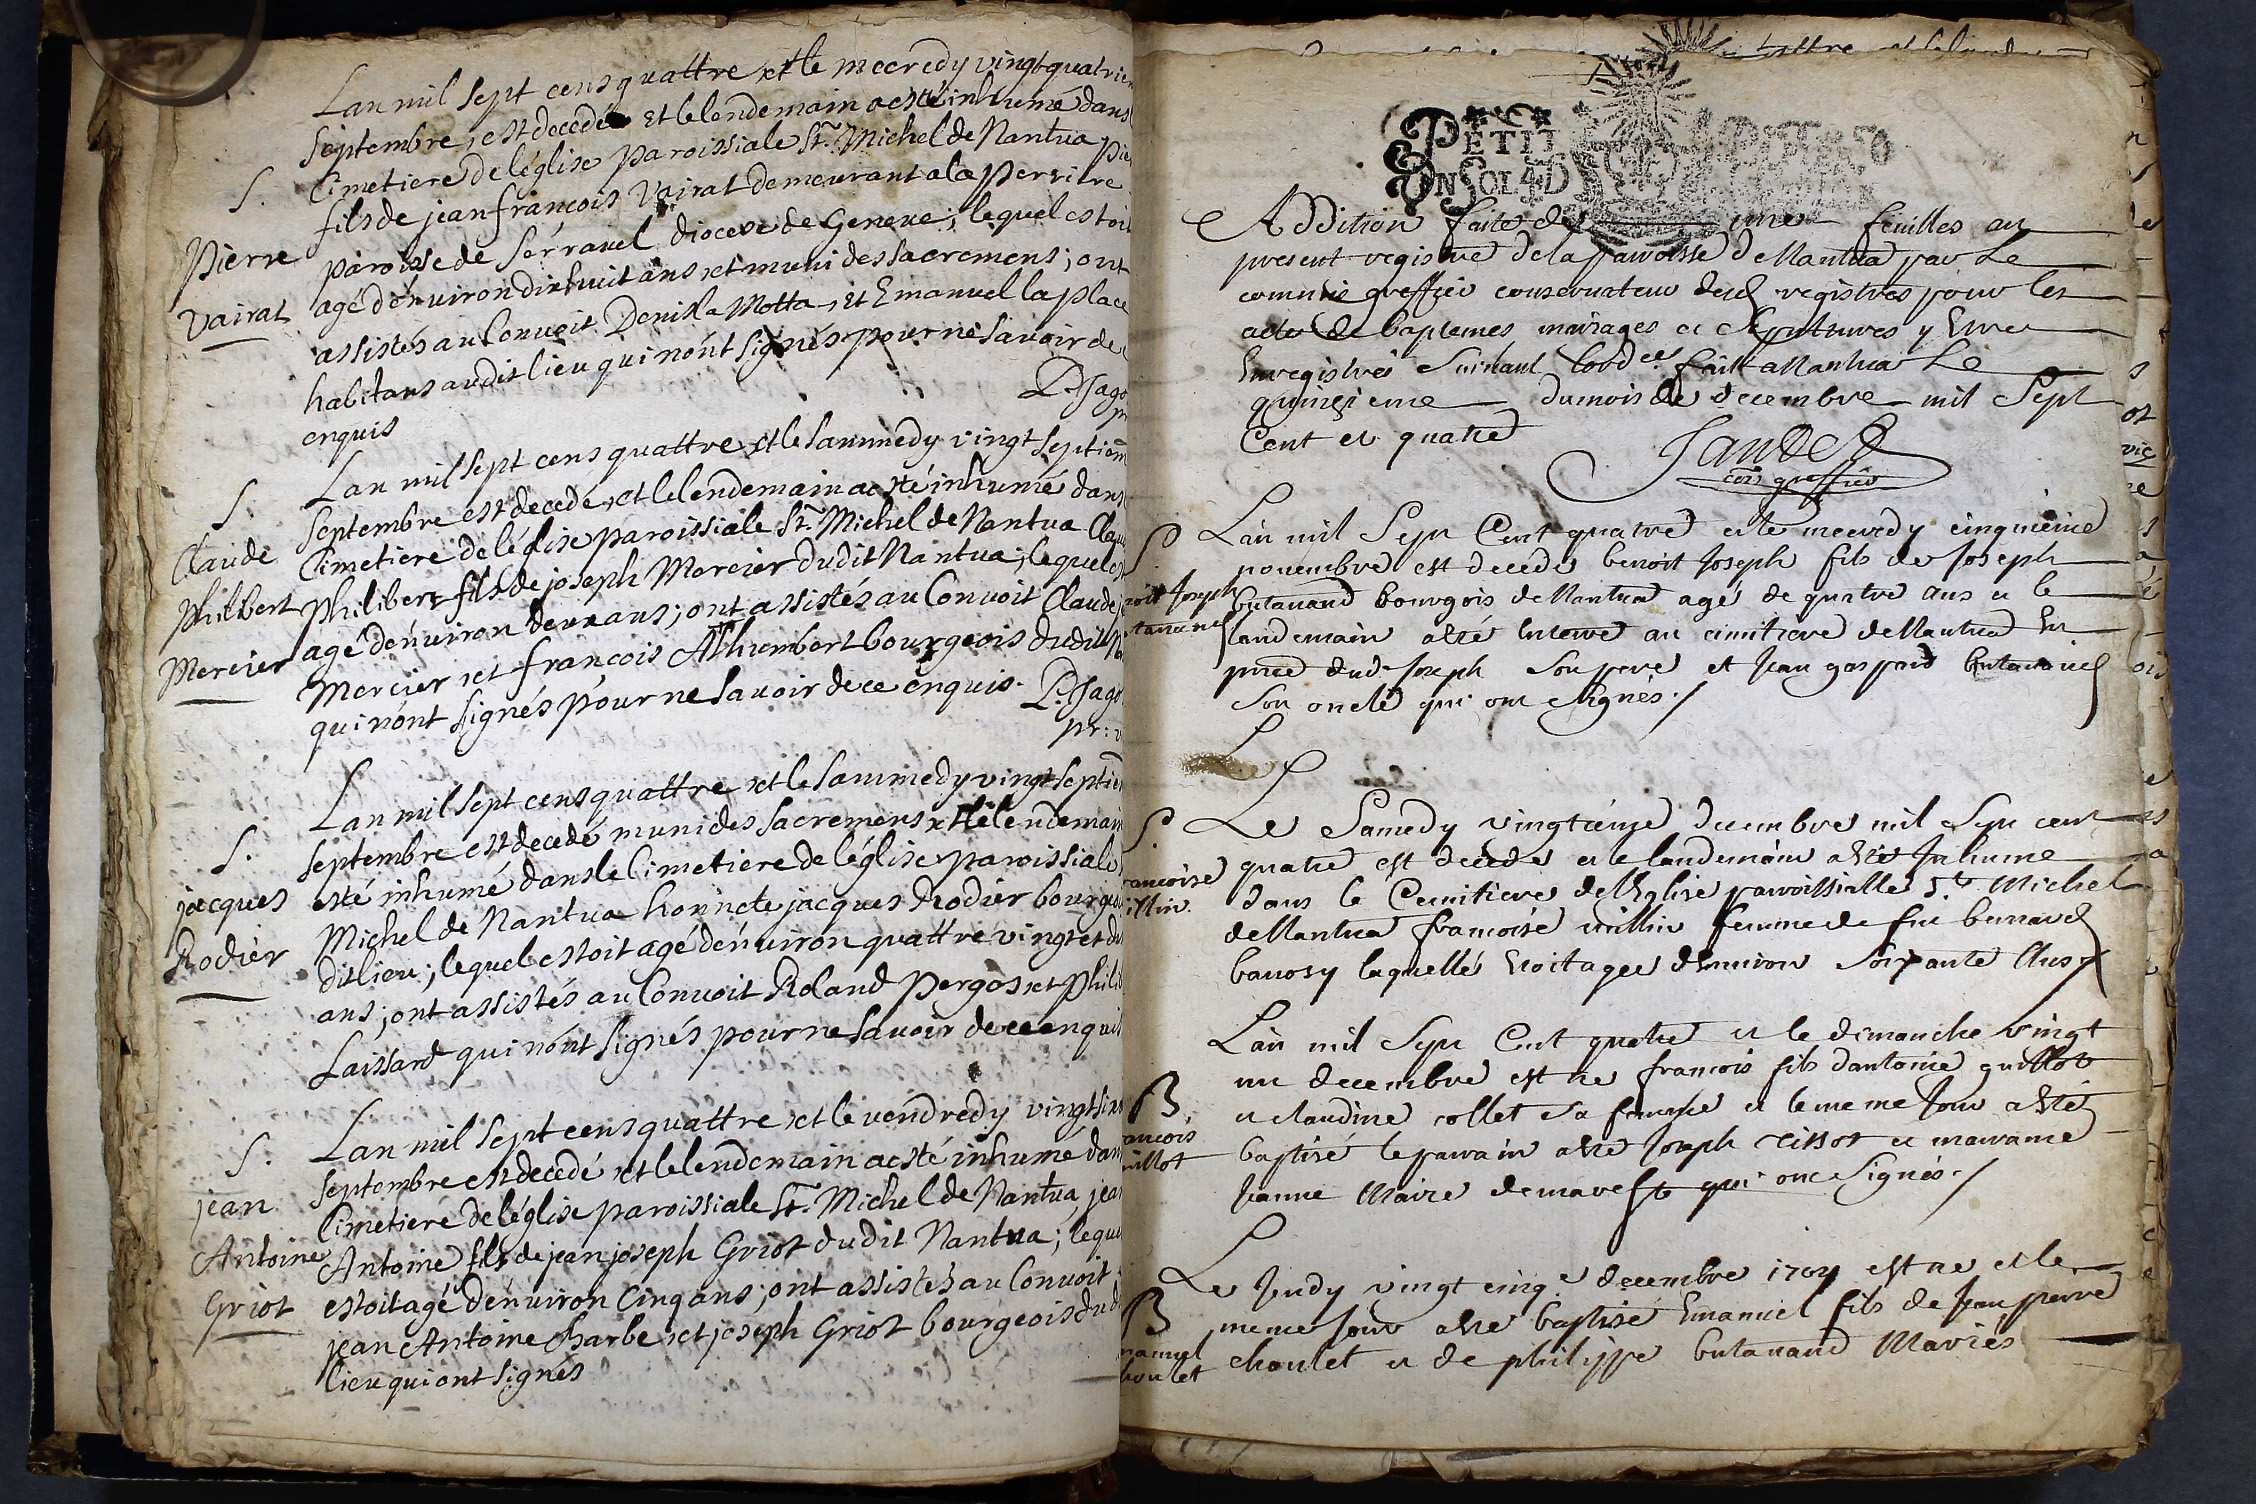 Lan mil sept cens quattre et le mecredy vingt quatrie
septembre, est decedé et le lendemain a esté inhumé dans
S. Cimetiere de léglise paroissiale St. Michel de Nantua pie
fils de jean françois Vairat demeurant a la
Pierre paroisse de Serrauel diocese de Geneue; lequel estoit
Vairat agé d'enuiron dixhuit ans et muni des sacremens; ont
assistés au Conuoit Denis la Motta, et Emanuel la place
habitans audit lieu qui nónt signés pour ne sauoir de
enquis
Lan mil sept cens quattre et le sammedy vingt septiem
S. septembre est decede et le lendemain a esté inhumé dans
Claude Cimetiere de léglise paroissiale St. Michel de Nantua Clau
Philibert Philibert fils de joseph Mercier dudit Nantua; lequel es
Mercier agé d'enuiron deux ans; ont assistés au Conuoit Claude
Mercier et françois Alhumbert bourgeois dudit
qui nónt signés pour ne sauoir de ce enquis.
Lan mil sept cens quattre et le sammedy vingt septiem
S. septembre est decedé muni des sacremens et le lendemain
jacques esté inhumé dans le Cimetiere de léglise paroissiale
Rodier Michel de Nantua honnete jacques Rodier bourgeo
dit lieu; lequel estoit agé d'enuiron quattre vingt et
ans; ont assistés au Conuoit Roland Pergos et Philib
Laissard qui nónt signés pour ne sauoir de ce enquis
Lan mil sept cens quattre et le vendredy vingt six
S. septembre est decedé et le lendemain a esté inhumé dans
jean Cimetiere de léglise paroissiale St. Michel de Nantua, jean
Antoine Antoine fils de jean joseph Griot dudit Nantua; lequel
Griot estoit agé d'enuiron Cinq ans; ont assistés au Conuoit
jean Antoine Charbe et joseph Griot bourgeois dud
lieu qui ont signés
PETIT
UN SOL 4 D
Addition faite de une feuilles au
present registre de la parroisse de Nantua par Le
commis greffier conseruateur desd registres pour les
actes de baptemes mariages et Sepultures y Estre
Enregistrés Suiuant lordce. fait a Nantua Le
quinzieme du mois de decembre mil Sept
Cent et quatre
com greffier
S. L'an mil Sept Cent quatre et le mecredy cinquieme
nouembre est decede benoit Joseph fils de Joseph
oit Joseph butauand bourgois de Nantua agé de quatre ans et le
tauand landemain a esté enterré au cimitiere de Nantua En
Joseph Son pere et Jean gaspard butauand
Son oncle qui ont Signés
S. Le Samedy vingtieme decembre mil Sept cent
ancoise quatre est decedé et le landemain a esté Inhume
illin dans le Cemitiere de l'Eglise parroissialle St Michel
de Nantua francoise millin femme de feu bernard
banosy laquelle Estoit agee d'Enuiron Soixante Ans
L'an mil Sept Cent quatre et le dimanche vingt
B un decembre est né francois fils dantoine guillot
ancois et claudine collet Sa femme et le meme Jour a esté
uillot baptisé le parain a esté Joseph tissot et maraine
Janne Marie demarest qui ont Signés
B Le Jeudy vingt cinqe decembre 1704 est né et le
manuel meme Jour a esté baptisé Emanuel fils de Jean pierre
houlet choulet et de philippe butauand Mariés